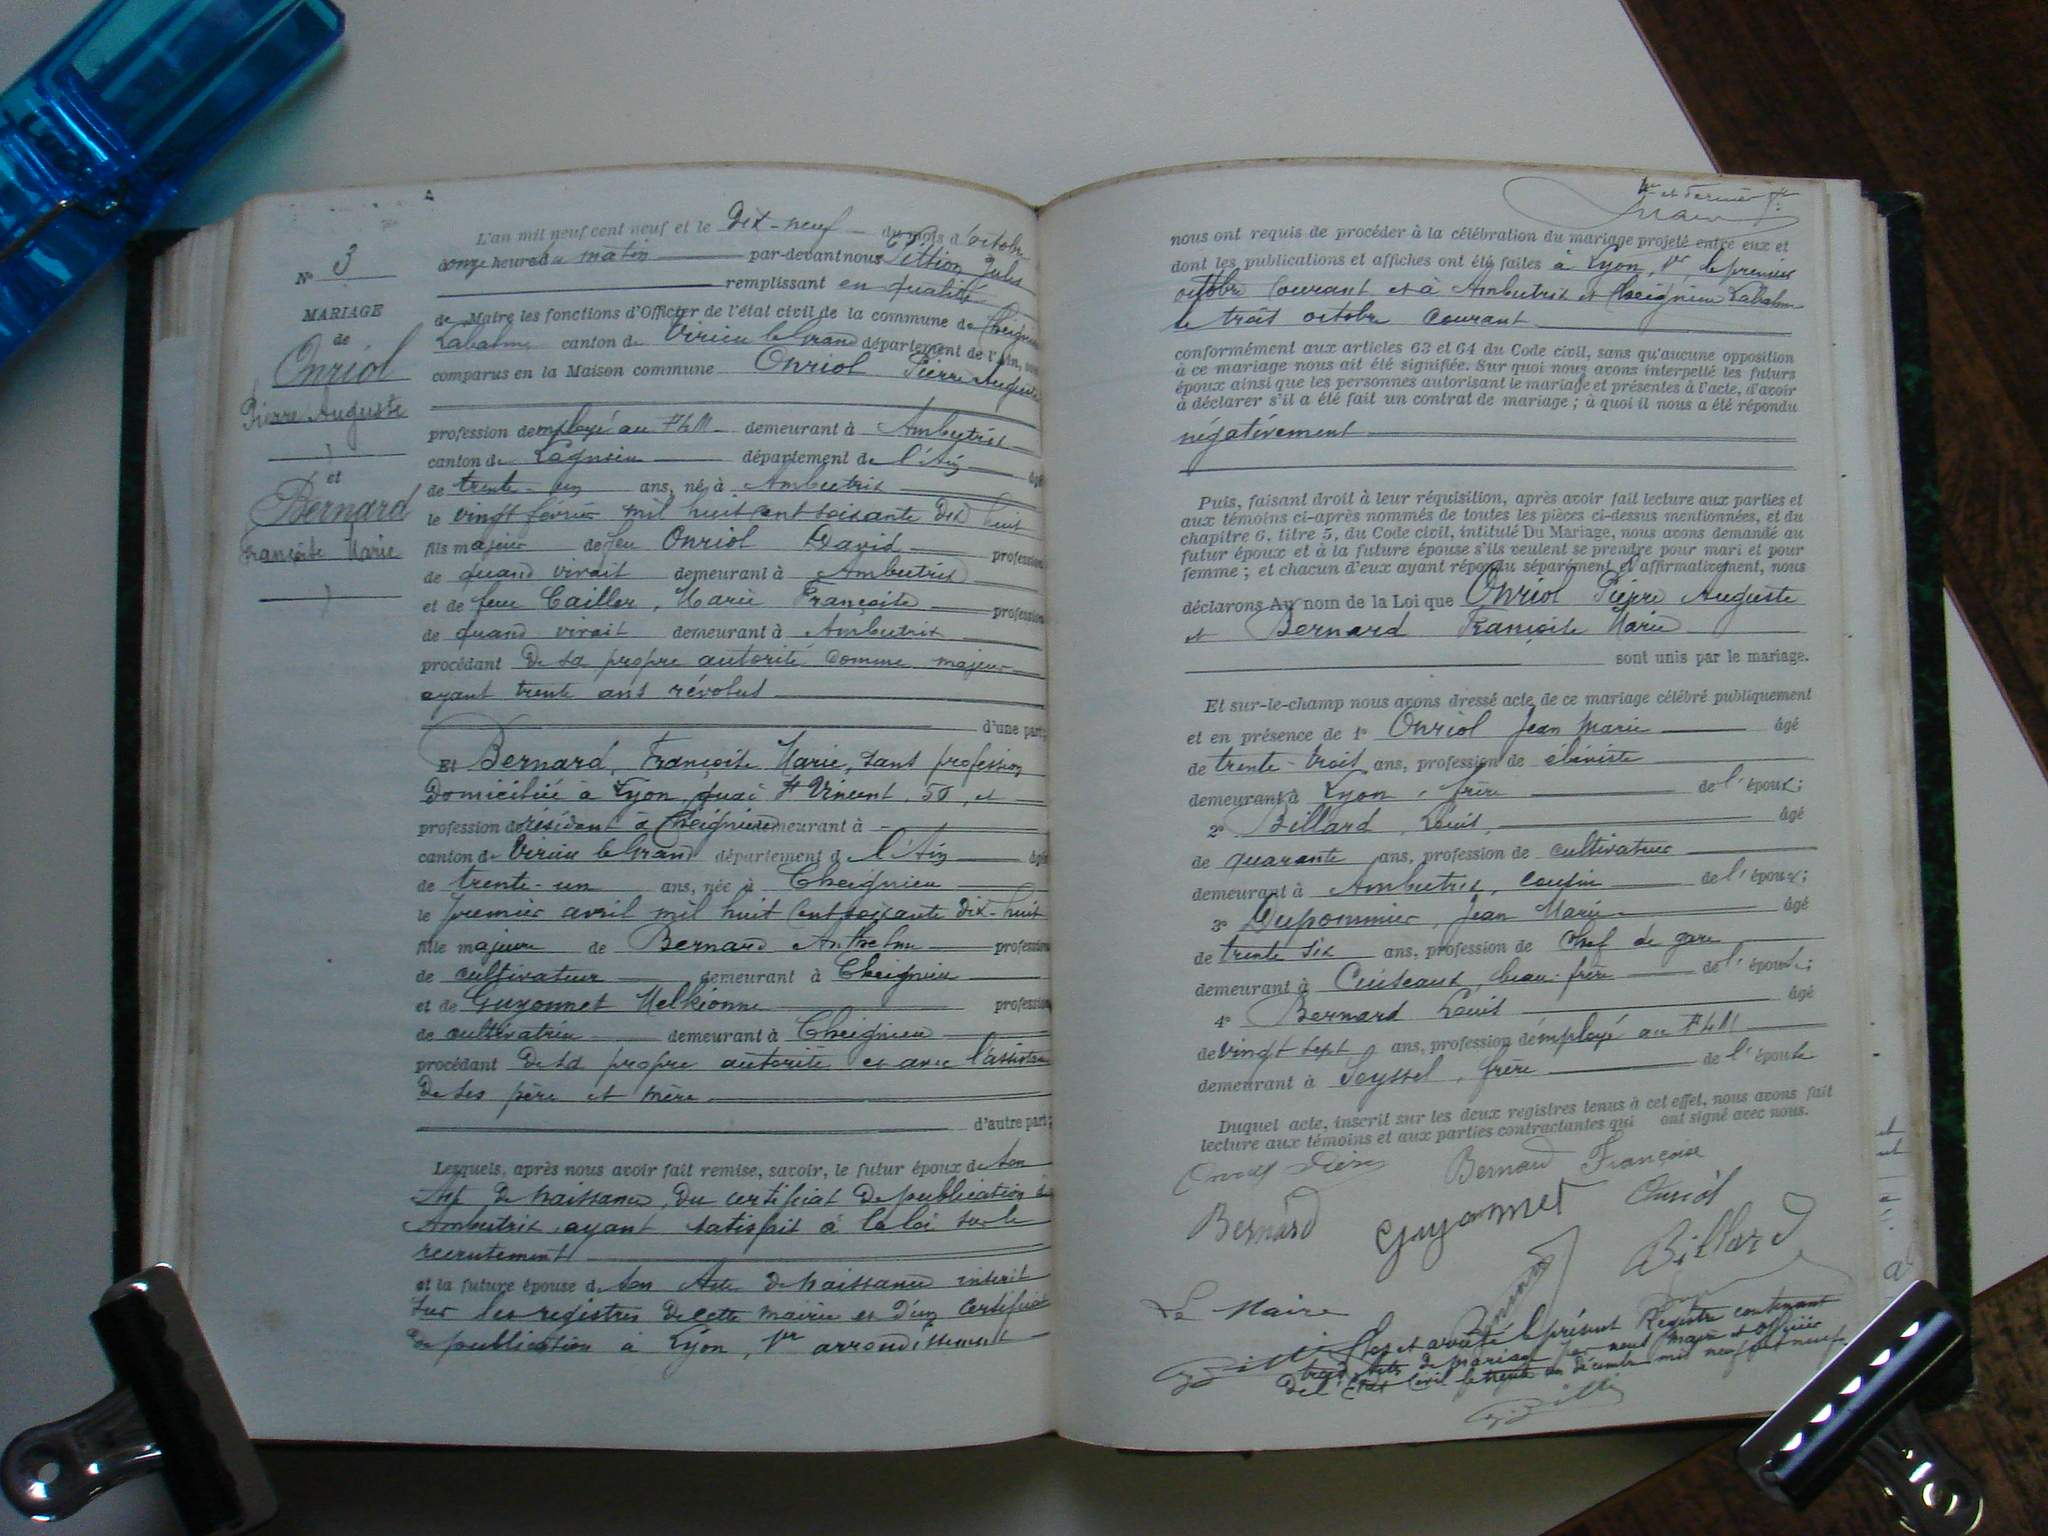 N° 3
MARIAGE
de
Onriol
Pierre Auguste
et
Bernard
Françoise Marie
L'an mil neuf cent neuf et le Dix-neuf du mois d'octobre
à onze heures du matin par-devant nous Jules
remplissant en qualité
de Maire les fonctions d'Officier de l'état civil de la commune de Cheignieu
Labalme canton de Virieu le Grand département de l'Ain, sont
comparus en la Maison commune Onriol Pierre Auguste
profession de employé au PLM demeurant à Ambutrix
canton de Lagnieu département de l'Ain âgé
de trente-un ans, né à Ambutrix
le vingt février mil huit cent soixante dix huit
fils majeur de feu Onriol David profession
de quand vivait demeurant à Ambutrix
et de feue Cailler, Marie Françoise profession
de quand vivait demeurant à Ambutrix
procédant De sa propre autorité comme majeur
ayant trente ans révolus
d'une part;
Et Bernard, Françoise Marie, sans profession
Domiciliée à Lyon, quai St Vincent, 50, et
profession de résidant à Cheignieu demeurant à
canton de Virieu le Grand département d l'Ain âgée
de trente-un ans, née à Cheignieu
le premier avril mil huit cent soixante dix-huit
fille majeure de Bernard Anthelme profession
de cultivateur demeurant à Cheignieu
et de Guyonnet Melkionne profession
de cultivatrice demeurant à Cheignieu
procédant De sa propre autorité et avec l'assistance
De ses père et mère
d'autre part;
Lesquels, après nous avoir fait remise, savoir, le futur époux de son
De naissance, du certificat De publication à
Ambutrix, ayant satisfait à la loi sur le
recrutement
et la future épouse d son Acte De naissance inscrit
sur les registres De cette mairie et d'un certificat
De publication à Lyon, 1er arrondissement
et dernier
nous ont requis de procéder à la célébration du mariage projeté entre eux et
dont les publications et affiches ont été faites à Lyon, 1er, le premier
octobre courant et à Ambutrix et Cheignieu Labalme
le trois octobre courant
conformément aux articles 63 et 64 du Code civil, sans qu'aucune opposition
à ce mariage nous ait été signifiée. Sur quoi nous avons interpellé les futurs
époux ainsi que les personnes autorisant le mariage et présentes à l'acte, d'avoir
à déclarer s'il a été fait un contrat de mariage; à quoi il nous a été répondu
négativement
Puis, faisant droit à leur réquisition, après avoir fait lecture aux parties et
aux témoins ci-après nommés de toutes les pièces ci-dessus mentionnées, et du
chapitre 6, titre 5, du Code civil, intitulé Du Mariage, nous avons demandé au
futur époux et à la future épouse s'ils veulent se prendre pour mari et pour
femme; et chacun d'eux ayant répondu séparément et affirmativement, nous
déclarons Au nom de la Loi que Onriol Pierre Auguste
et Bernard Françoise Marie
sont unis par le mariage.
Et sur-le-champ nous avons dressé acte de ce mariage célébré publiquement
et en présence de 1° Onriol Jean Marie âgé
de trente-trois ans, profession de ébéniste
demeurant à Lyon, frère de l'époux;
2° Billard, Louis, âgé
de quarante ans, profession de cultivateur
demeurant à Ambutrix, cousin de l'époux;
3° Dupommier, Jean Marie âgé
de trente six ans, profession de chef de gare
demeurant à Cuiseaux, beau-frère de l'épouse;
4° Bernard Louis âgé
de vingt sept ans, profession d employé au PLM
demeurant à Seyssel, frère de l'épouse
Duquel acte, inscrit sur les deux registres tenus à cet effet, nous avons fait
lecture aux témoins et aux parties contractantes qui ont signé avec nous.
Bernard Françoise
Bernard Guyonnet Onriol
Billard
Le Maire
Clos et arrêté le présent Registre contenant
trois actes de mariage par nous Maire et officier
De l'Etat Civil le trente un décembre mil neuf cent neuf